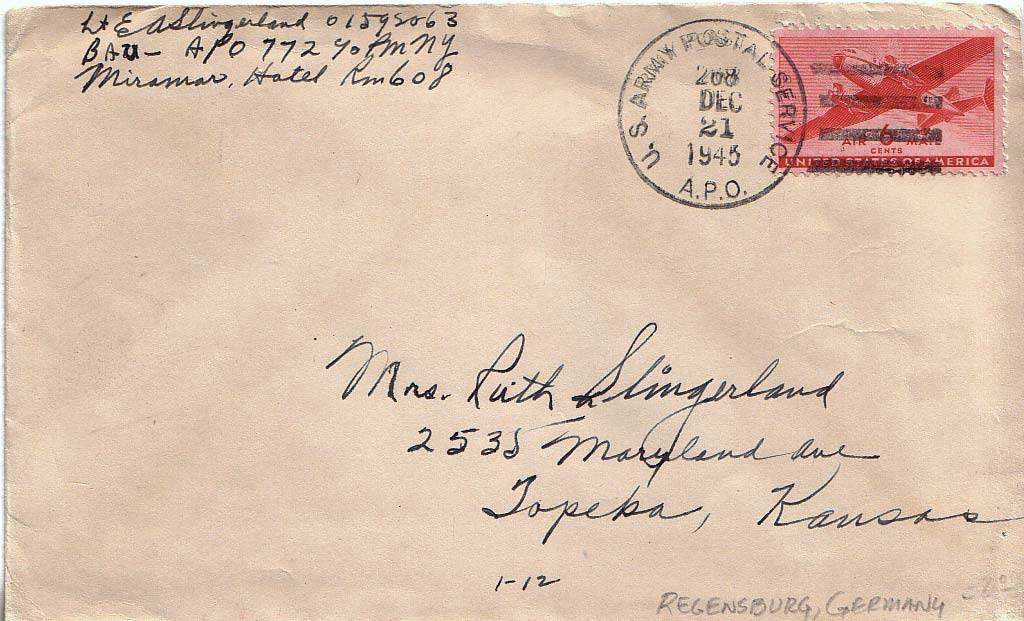 Lt E A Slingerland 01595063
BAU - APO 772 c/o PM NY
Miramar, Hotel Rm 608
U.S. ARMY POSTAL SERVICE
DEC
21
1945
A.P.O.
AIR 6 MAIL
CENTS
UNITED STATES OF AMERICA
Mrs. Ruth Slingerland
2535 Maryland Ave
Topeka, Kansas
1-12
REGENSBURG, GERMANY